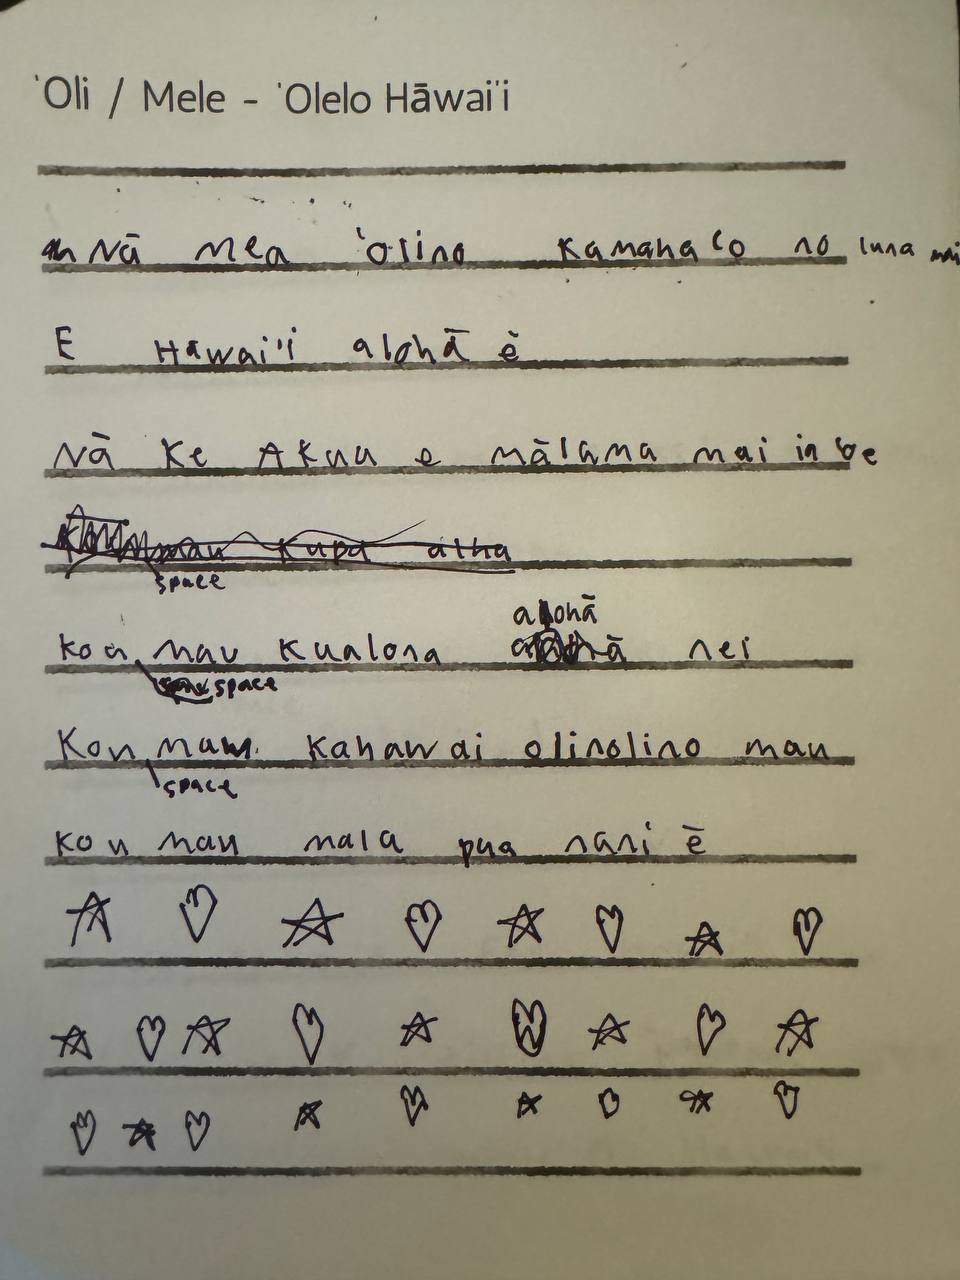 'Oli / Mele - 'Olelo Hāwai'i
Nā mea 'olino Kamaha'o no luna mai
E Hāwai'i alohā ē
Nā Ke AKua e mālama mai ia 'oe
mau Kupa
space
alohā
Kou mau Kualona nei
space
Kou mau Kahawai olinolino mau
space
Kou mau mala pua nani ē